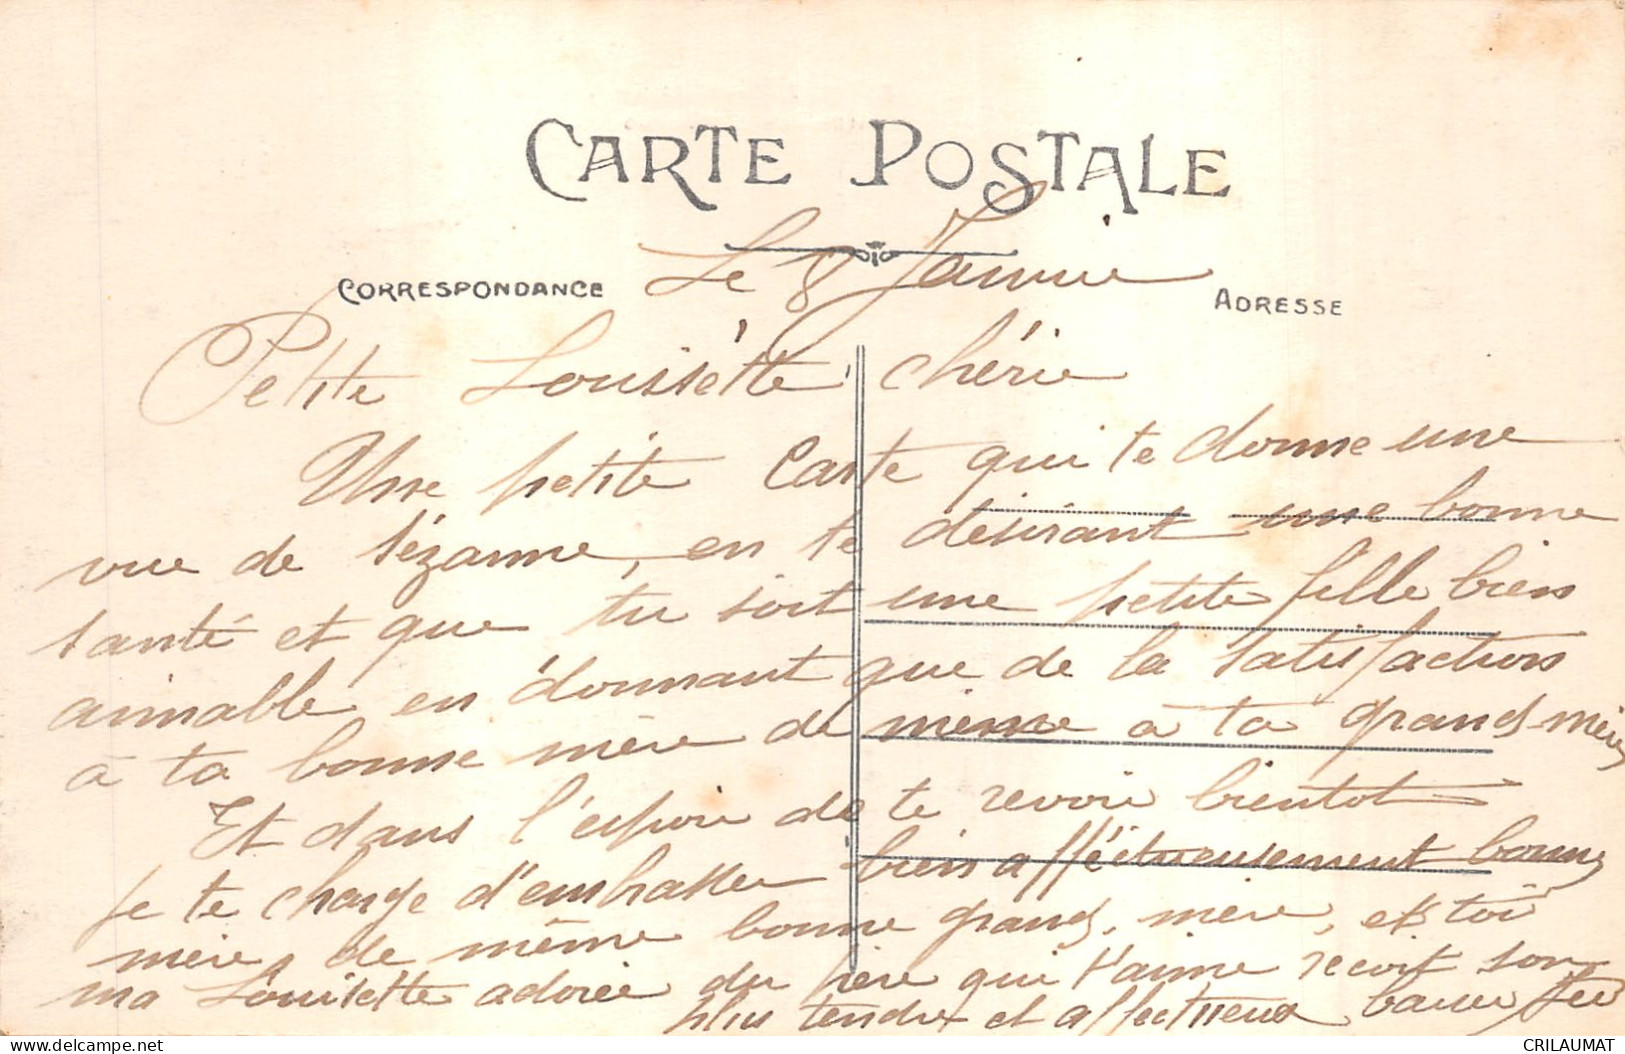 CARTE POSTALE
CORRESPONDANCE
Le 8 Janvie
ADRESSE
Petite Louisétte chérie
Une petite Carte qui te donne une
vue de Sézanne, en te désirant une bonne
santé et que tu soit une petite fille bien
aimable en donnant que de la satisfaction
à ta bonne mère de même à ta grand-mère
Et dans l'espoir de te revoir bientot
je te charge d'embrasser bien afféctueusement bonne
mère, de même bonne grand, mère, et toi
ma Louisétte adorée du père qui t'aime recoit son
plus tendre et affectueux baiser
CRILAUMAT